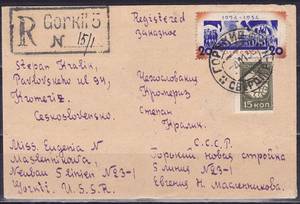 R Gorkii 5
N 15/1
Registered
заказное
1924-1934
20 20
15 КОП
Stepan Kralik,
Pavlovskego ul 94,
Kromeriz
Ceskoslovensko.
Чехословакия
Кромериз
Степан
Кралик.
Miss. Eugenia N
Maslennikova,
Neubau 5 linien №23-1
Gorkii, U.S.S.R.
С.С.С.Р.
Горький новая стройка
5 линия №23-1
Евгения Н. Масленникова.